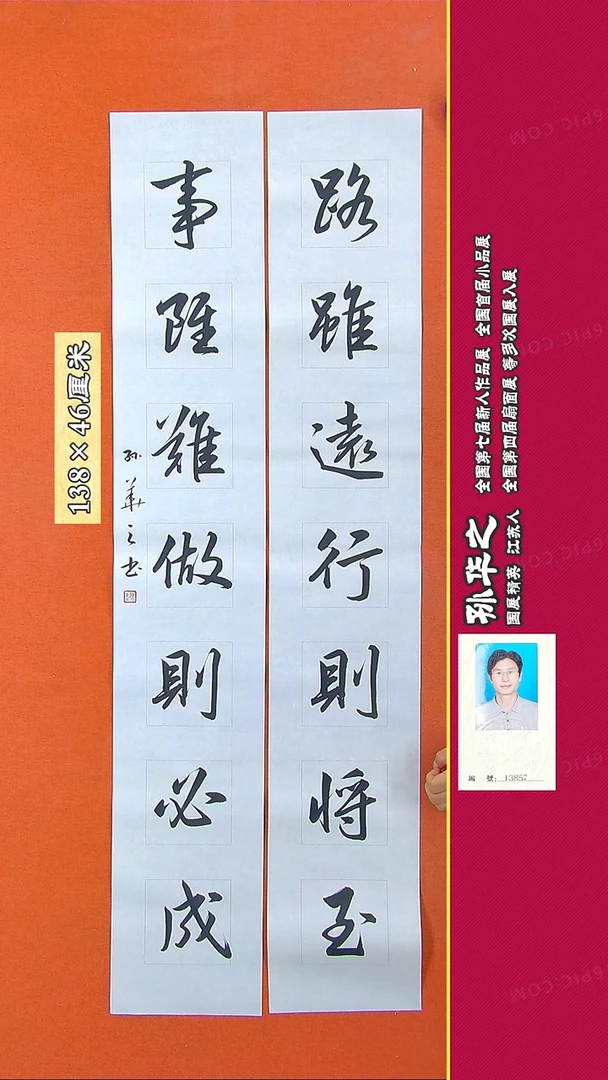 路雖遠行則将至
事雖難做則必成
孙華之书
138×46厘米
孙华之
国展精英 江苏人
全国第七届新人作品展 全国首届小品展
全国第四届扇面展 等多次国展入展
編 號：13857